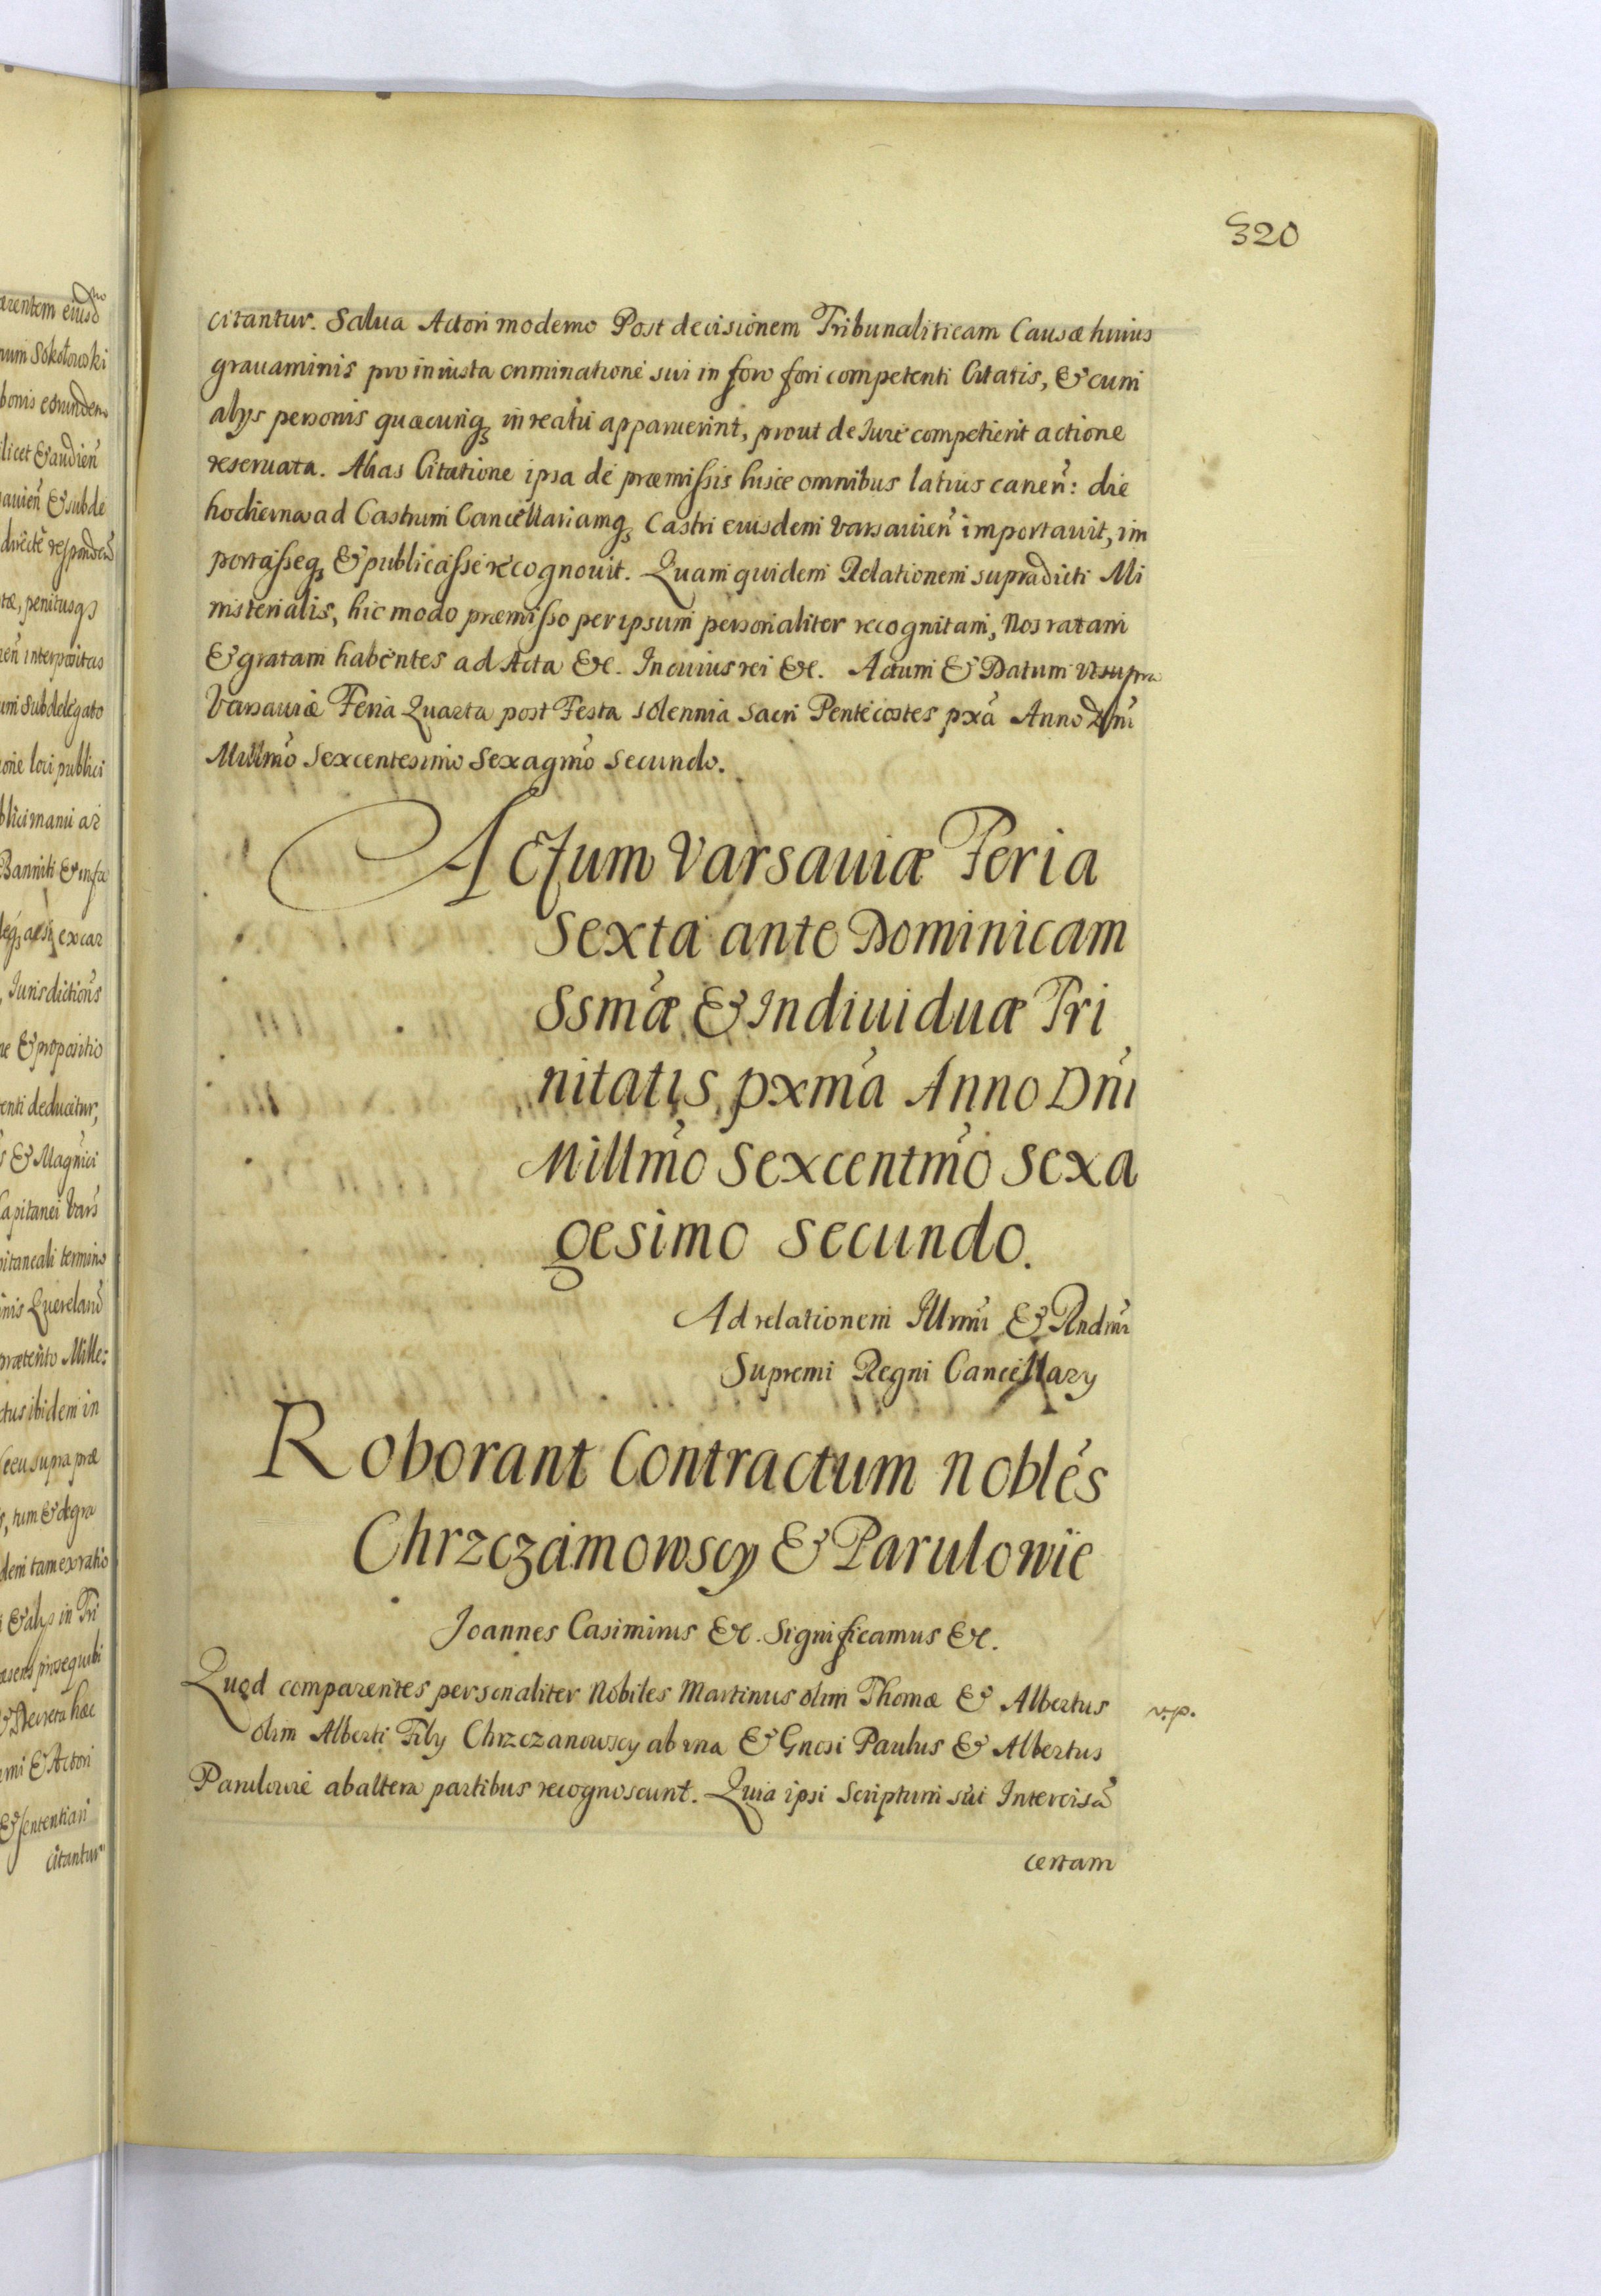 320
citantur. Salua Actori moderno Post decisionem Tribunaliticam Causæ huius
grauaminis pro iniusta criminatione sui in foro fori competenti Citatis, & cum
alys personis quæcunq, in reatu apparuerint, prout de Iure competierit actione
reseruata. Alias Citatione ipsa de præmissis hisce omnibus latius canen: die
hodierna ad Castrum Cancellariamq, Castri eiusdem Varsauien importauit, im
portasseq, & publicasse recognouit. Quam quidem Relationem supradicti Mi
nisterialis, hic modo præmisso per ipsum personaliter recognitam, Nos ratam
& gratam habentes ad Acta &c. In cuius rei &c. Actum & Datum ut supra
Varsauiæ Feria Quarta post Festa solennia Sacri Pentecostes pxa Anno Dni
Millmo Sexcentesimo Sexagmo Secundo.
Actum Varsauiæ Feria
Sexta ante Dominicam
Ssmæ & Indiuiduæ Tri
nitatis pxma Anno Dni
Millmo Sexcentmo Sexa
gesimo Secundo.
Ad relationem Illmi & Rndmi
Supremi Regni Cancellary
Roborant Contractum Nobles
Chrzczamowscy & Parulowie
Joannes Casimirus &c. Significamus &c.
Quod comparentes personaliter Nobiles Martinus olim Thomæ & Albertus
v.p.
olim Alberti Fily Chrzczanowscy ab una & Gnosi Paulus & Albertus
Parulowie ab altera partibus recognoscunt. Quia ipsi Scriptum sui Intercisa
certam